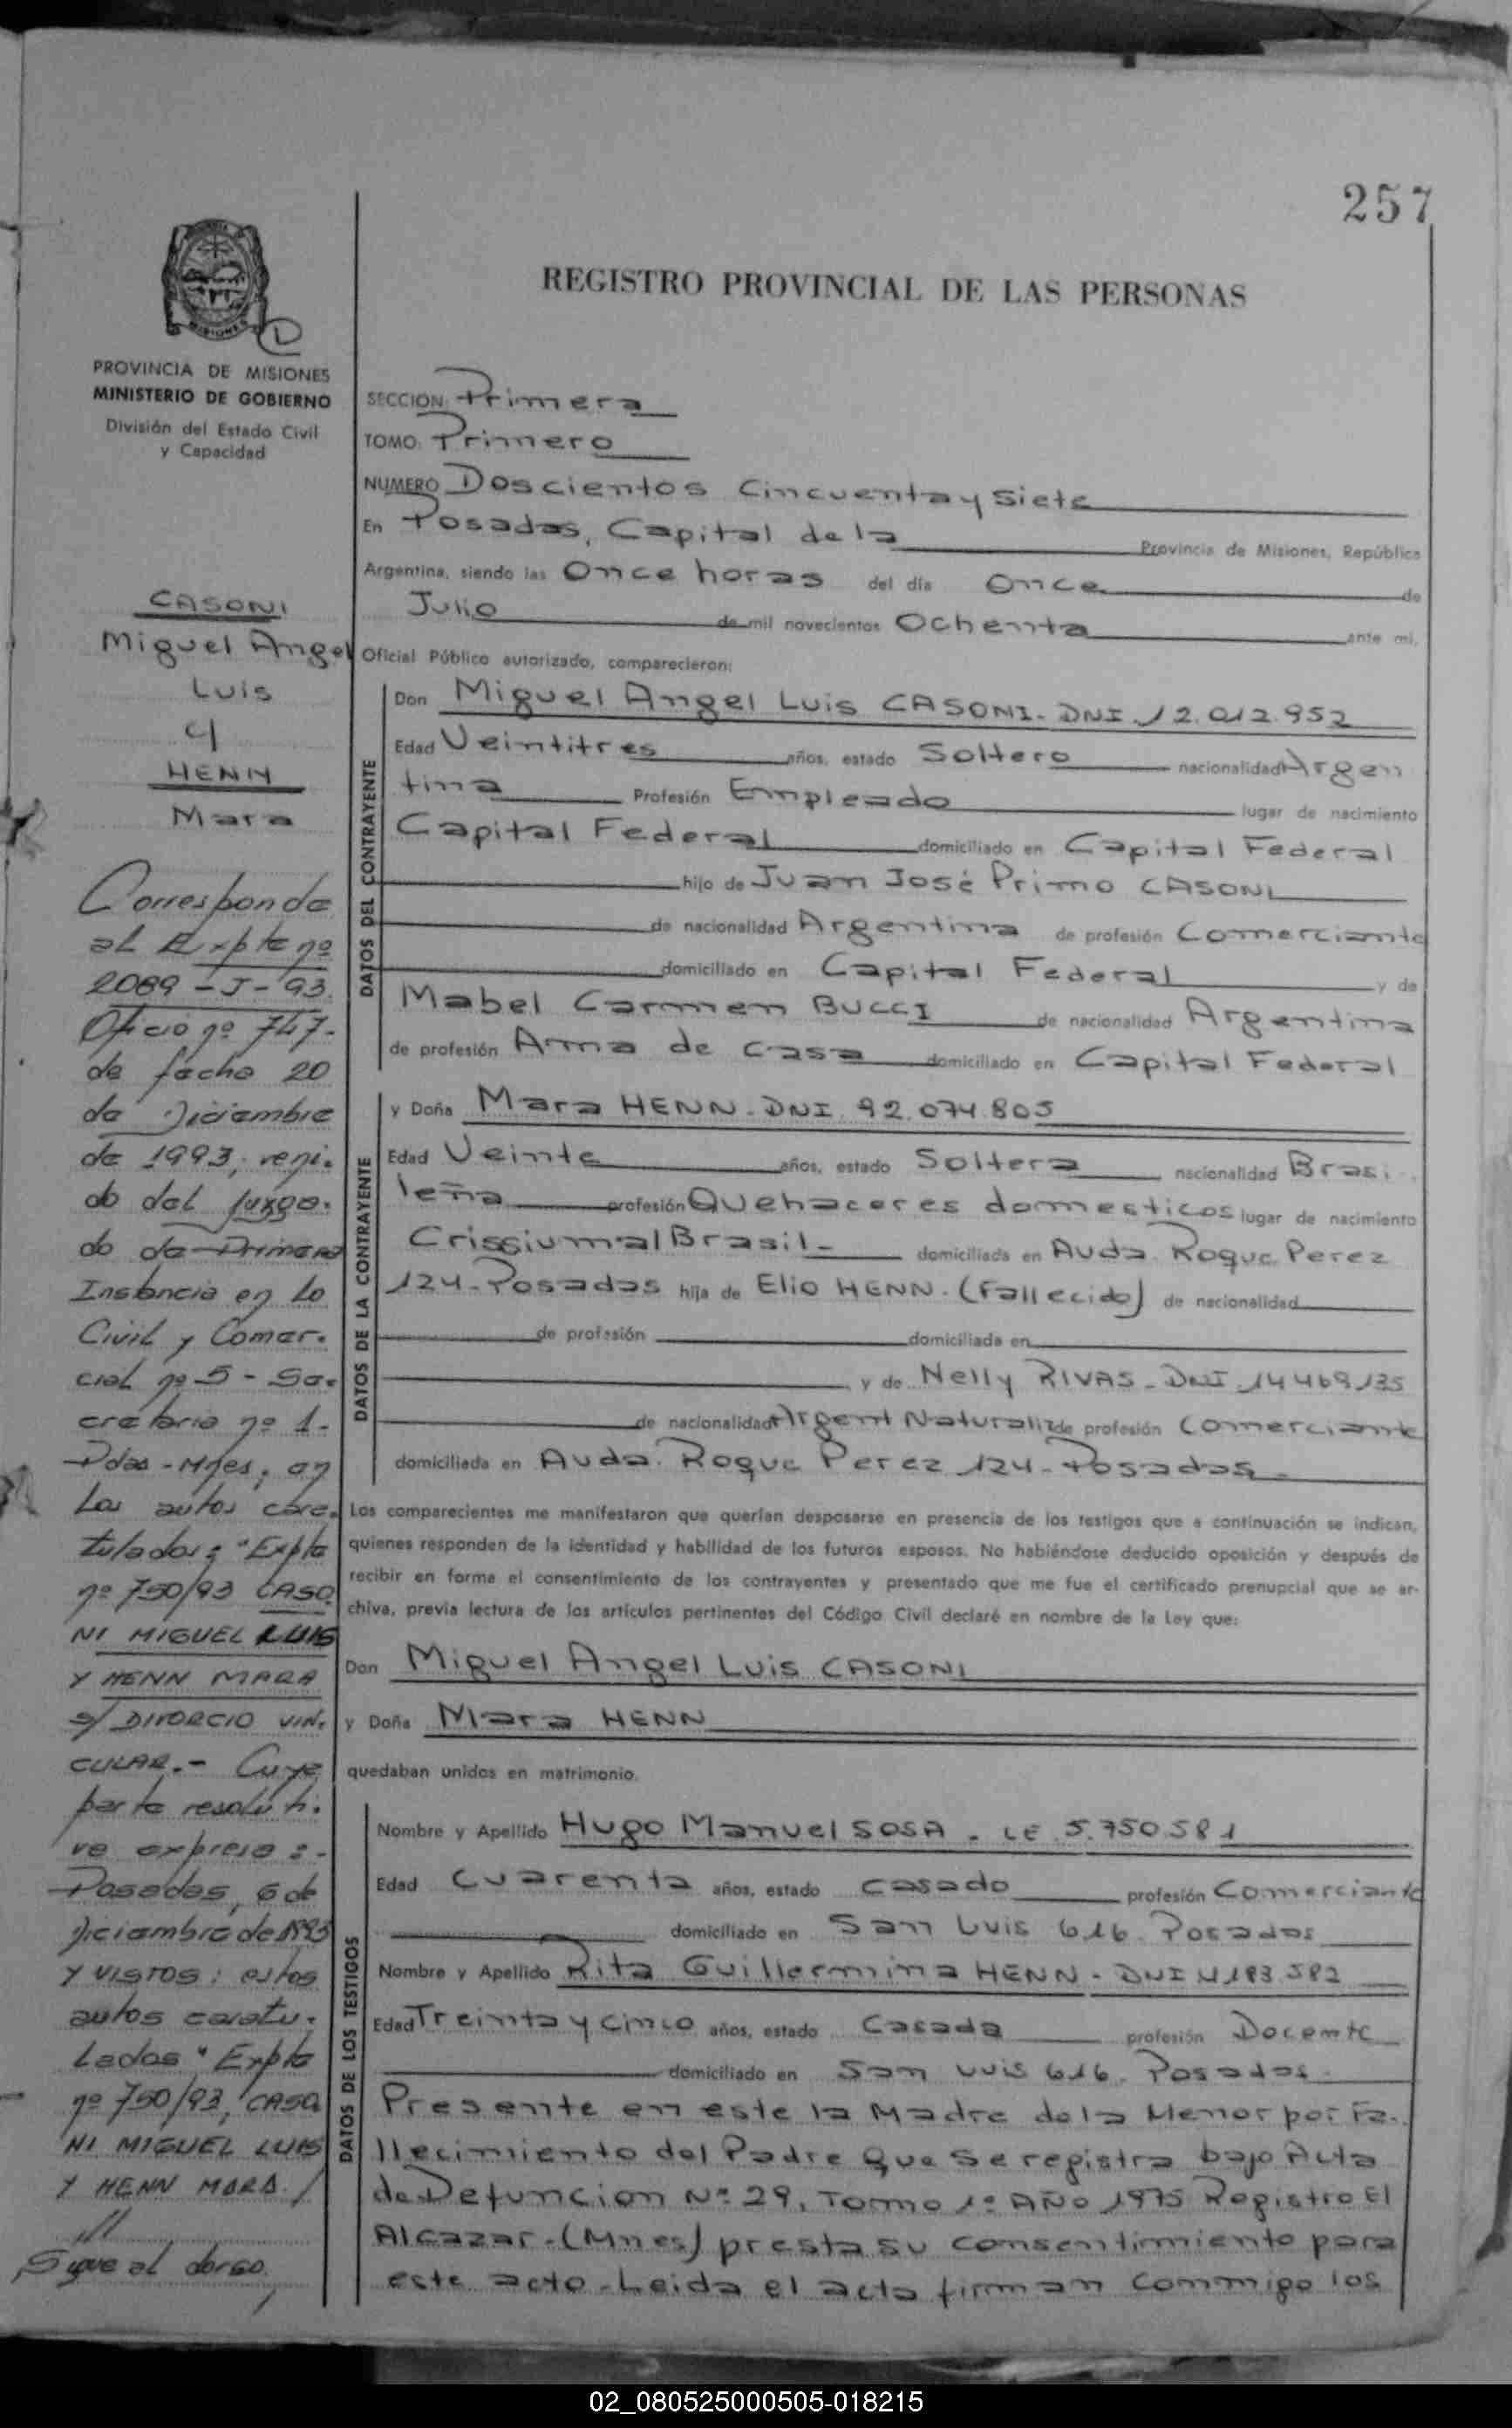 257
REGISTRO PROVINCIAL DE LAS PERSONAS
MISIONES
D
PROVINCIA DE MISIONES
MINISTERIO DE GOBIERNO
División del Estado Civil
y Capacidad
SECCION: Primera
TOMO: Primero
NUMERO Doscientos Cincuenta y Siete
En Posadas, Capital de la Provincia de Misiones, República
Argentina, siendo las Once horas del día Once de
Julio de mil novecientos Ochenta ante mi,
Oficial Público autorizado, comparecieron:
DATOS DEL CONTRAYENTE
Don Miguel Angel Luis CASONI - DNI 12.012.952
Edad Veintitres años, estado Soltero nacionalidad Argen
tina Profesión Empleado lugar de nacimiento
Capital Federal domiciliado en Capital Federal
hijo de Juan José Primo CASONI
de nacionalidad Argentina de profesión Comerciante
domiciliado en Capital Federal y de
Mabel Carmen BUCCI de nacionalidad Argentina
de profesión Ama de casa domiciliado en Capital Federal
DATOS DE LA CONTRAYENTE
y Doña Mara HENN - DNI. 92.074.805
Edad Veinte años, estado Soltera nacionalidad Brasi
leña profesión Quehaceres domesticos lugar de nacimiento
Crissiumal Brasil - domiciliada en Avda. Roque Perez
124 - Posadas hija de Elio HENN. (Fallecido) de nacionalidad
de profesión domiciliada en
y de Nelly RIVAS - DNI 14469135
de nacionalidad Argent Naturaliz de profesión Comerciante
domiciliada en Avda. Roque Perez 124 - Posadas -
Los comparecientes me manifestaron que querían desposarse en presencia de los testigos que a continuación se indican,
quienes responden de la identidad y habilidad de los futuros esposos. No habiéndose deducido oposición y después de
recibir en forma el consentimiento de los contrayentes y presentado que me fue el certificado prenupcial que se ar-
chiva, previa lectura de los artículos pertinentes del Código Civil declaré en nombre de la Ley que:
Don Miguel Angel Luis CASONI
y Doña Mara HENN
quedaban unidos en matrimonio.
DATOS DE LOS TESTIGOS
Nombre y Apellido Hugo Manuel SOSA - LE 5.750.581
Edad Cuarenta años, estado Casado profesión Comerciante
domiciliado en San Luis 616. Posadas
Nombre y Apellido Rita Guillermina HENN - DNI 4183.582
Edad Treinta y Cinco años, estado Casada profesión Docente
domiciliado en San Luis 616. Posadas.
Presente en este la Madre de la Menor por Fa.
llecimiento del Padre Que se registra bajo Acta
de Defuncion Nº 29. Tomo 1º Año 1975 Registro El
Alcazar - (Mnes) presta su consentimiento para
este acto - Leida el acta firman conmigo los
CASONI
Miguel Angel
Luis
y
HENN
Mara
Corresponde
al Expte nº
2089 - J - 93.
Oficio nº 747-
de fecha 20
de Diciembre
de 1993, reni.
do del Juzga.
do de Primera
Instancia en lo
Civil y Comer.
cial nº 5 - Se.
cretaria nº 1 -
Pdas - Mnes; en
los autos care.
tulados: "Expte
nº 750/93 CASO.
NI MIGUEL LUIS
Y HENN MARA
S/ DIVORCIO VIN.
CULAR. - Cuya
parte resoluti.
va expresa: -
Posadas, 6 de
Diciembre de 1993
Y VISTOS: estos
autos caratu.
lados "Expte
nº 750/93, CASO.
NI MIGUEL LUIS
Y HENN MARA /
//
Sigue al dorso.
02_080525000505-018215